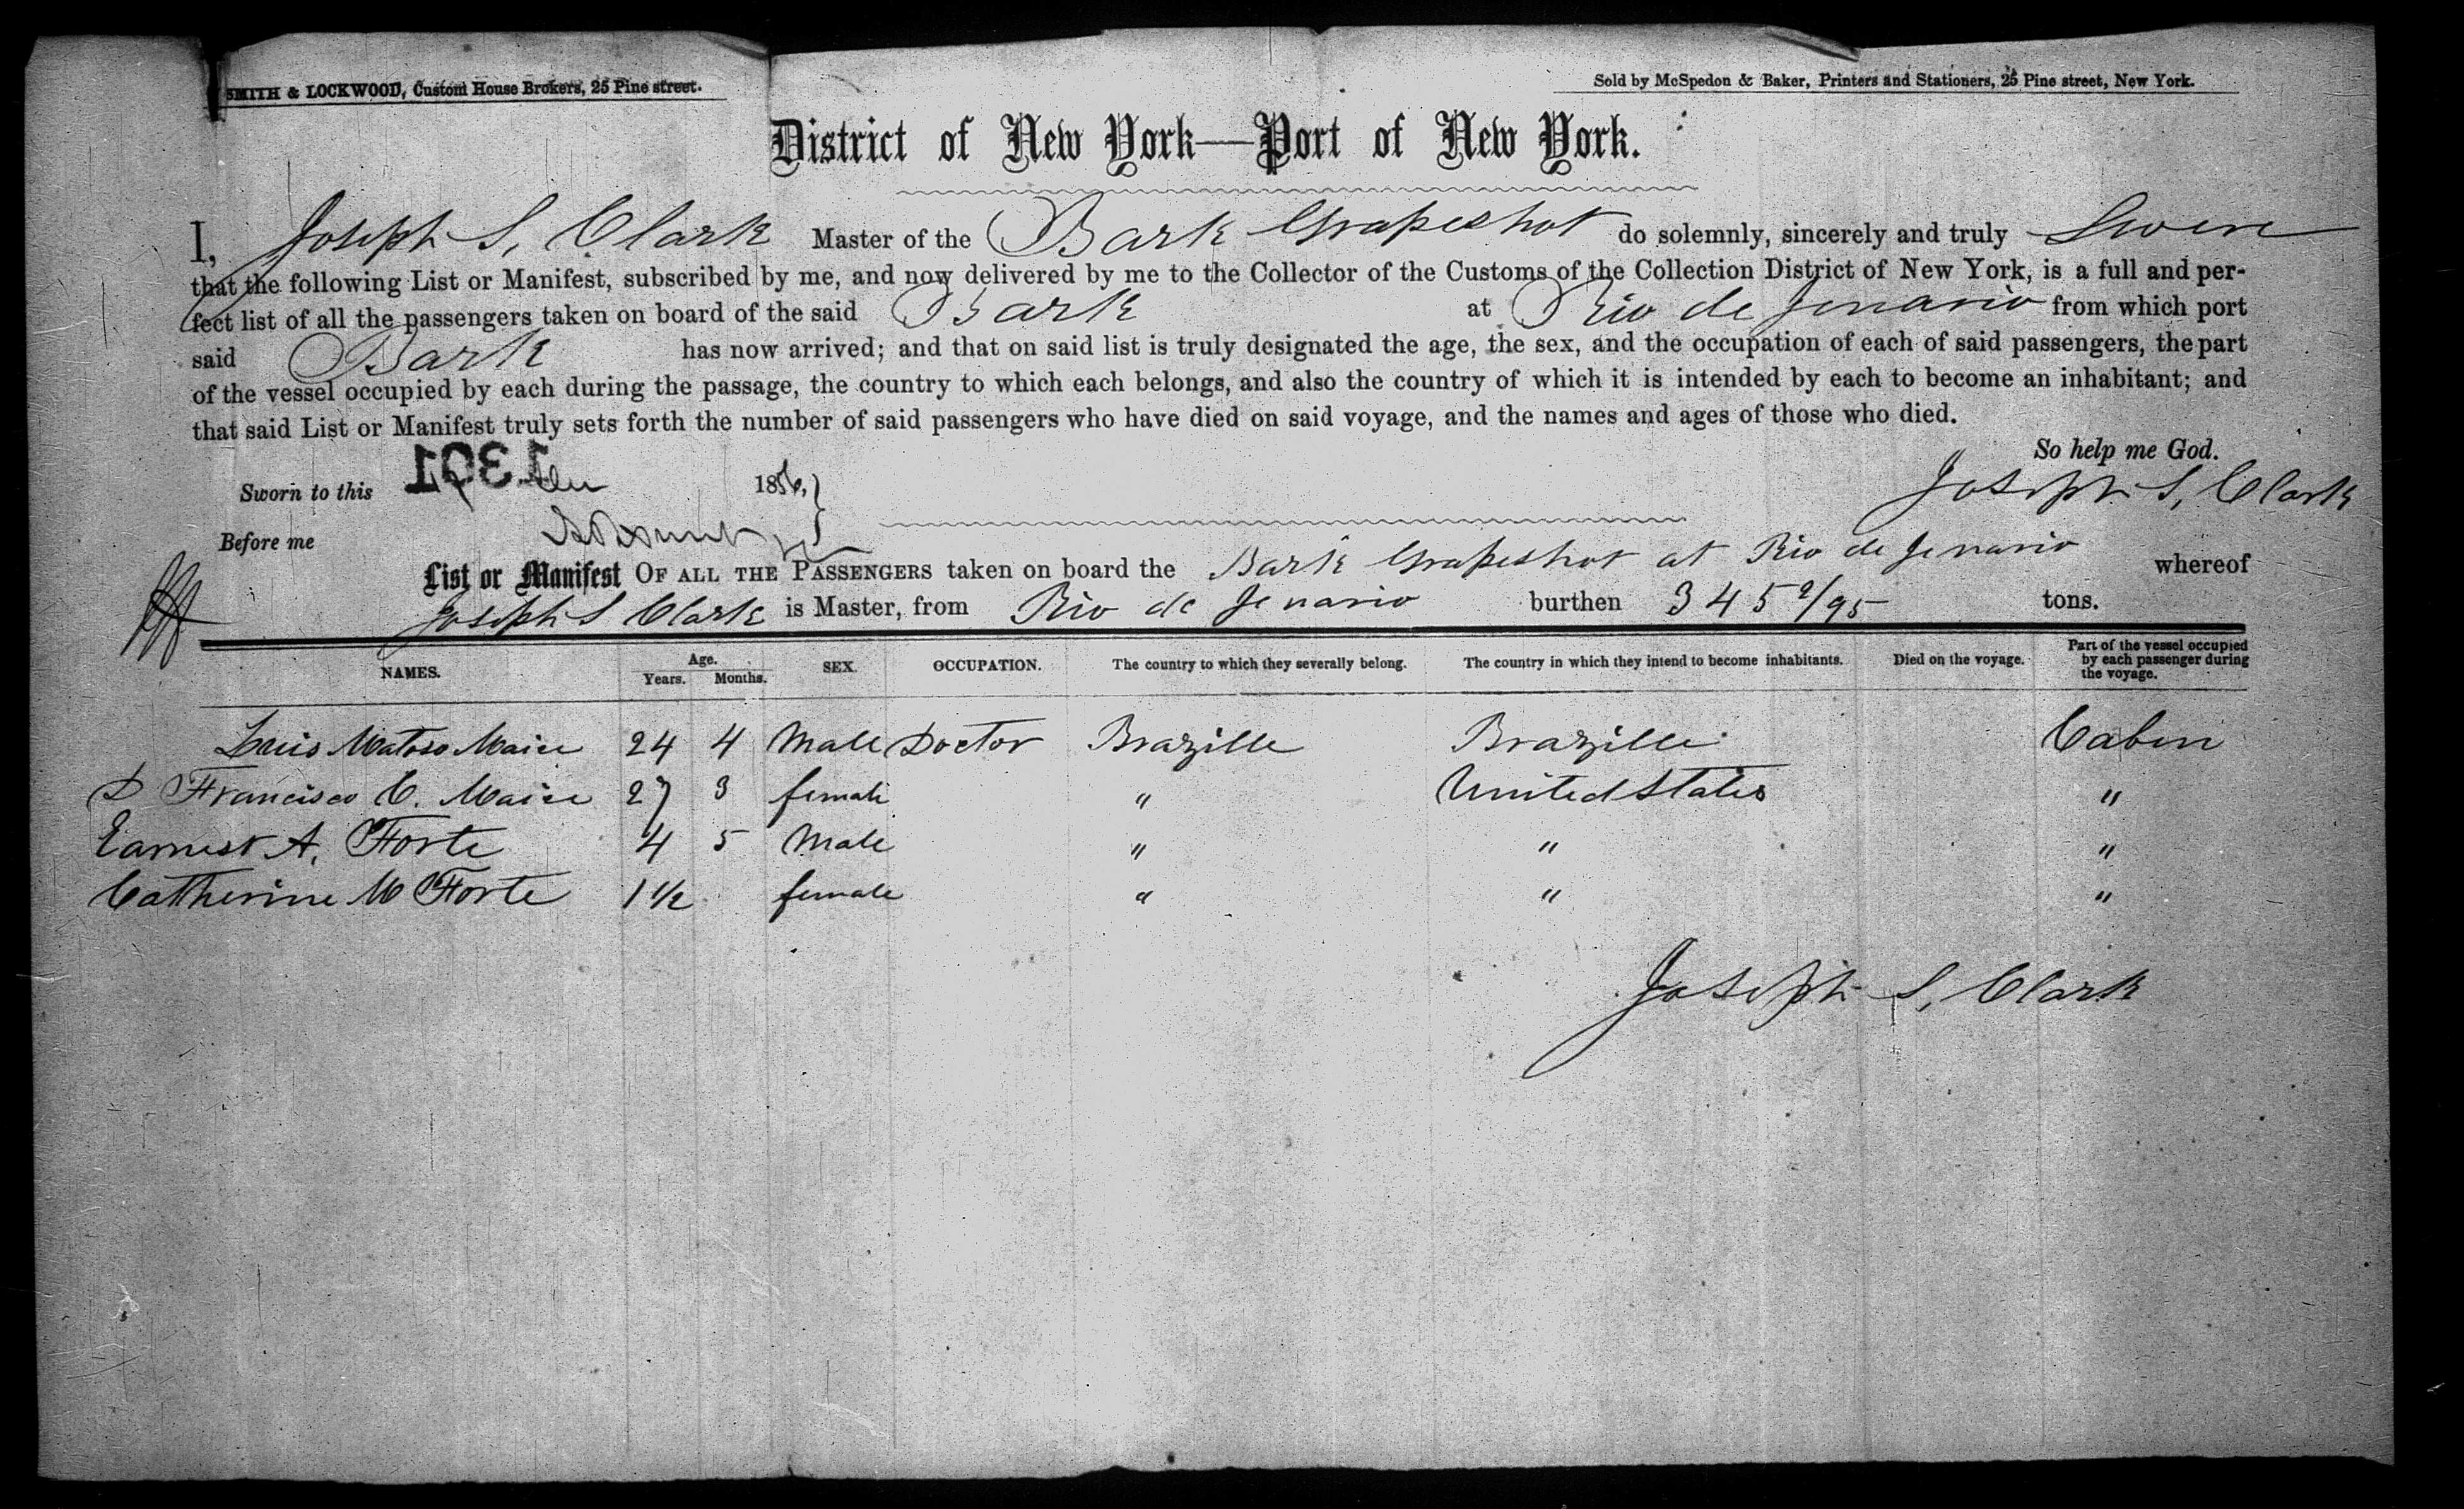 SMITH & LOCKWOOD, Custom House Brokers, 25 Pine street.
Sold by McSpedon & Baker, Printers and Stationers, 25 Pine street, New York.
District of New York—Port of New York.
I, Joseph S. Clark Master of the Bark Grapeshot do solemnly, sincerely and truly Swere
that the following List or Manifest, subscribed by me, and now delivered by me to the Collector of the Customs of the Collection District of New York, is a full and per-
fect list of all the passengers taken on board of the said Bark at Rio de Jenario from which port
said Bark has now arrived; and that on said list is truly designated the age, the sex, and the occupation of each of said passengers, the part
of the vessel occupied by each during the passage, the country to which each belongs, and also the country of which it is intended by each to become an inhabitant; and
that said List or Manifest truly sets forth the number of said passengers who have died on said voyage, and the names and ages of those who died.
So help me God.
Sworn to this 1301 1856,
Joseph S. Clark
Before me
List or Manifest OF ALL THE PASSENGERS taken on board the Bark Grapeshot at Rio de Jenario whereof
Joseph S Clark is Master, from Rio de Jenario burthen 345 2/95 tons.
NAMES. Age. Years. Months. SEX. OCCUPATION. The country to which they severally belong. The country in which they intend to become inhabitants. Died on the voyage. Part of the vessel occupied by each passenger during the voyage.
Luis Matoso Maice 24 4 Male Doctor Brazille Brazille Cabin
D Francisco C. Maice 27 3 female " United States "
Earnest A. Forte 4 5 Male " " "
Catherine M Forte 1 1/2 female " " "
Joseph S. Clark